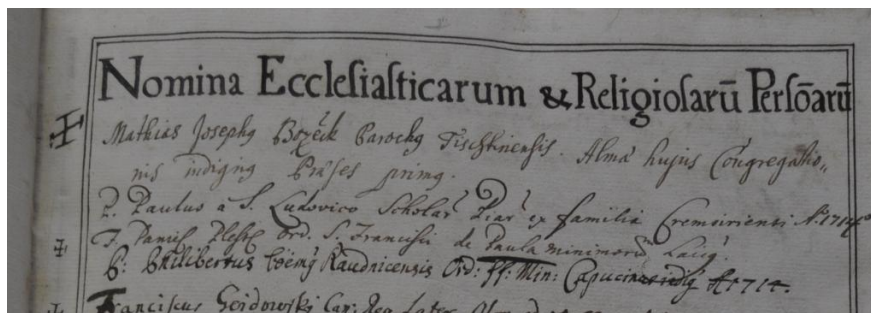 Nomina Ecclesiasticarum & Religiosarū Persōarū
Mathias Josephꝯ Bozěck Parochꝯ Tischtinensis. Alma hujus Congregatio„
nis indignꝯ Præses primꝯ.
P. Paulus a S. Ludovico Scholar Piar ex familia Cremsiriensi Aº 1714
F. Ord. S. Francisci de Paula minimorū Laicꝯ.
P: Philibertus Boëmꝯ Raudnicensis Ord: ff: Min: A 1714.
Franciscus Can: Reg Later